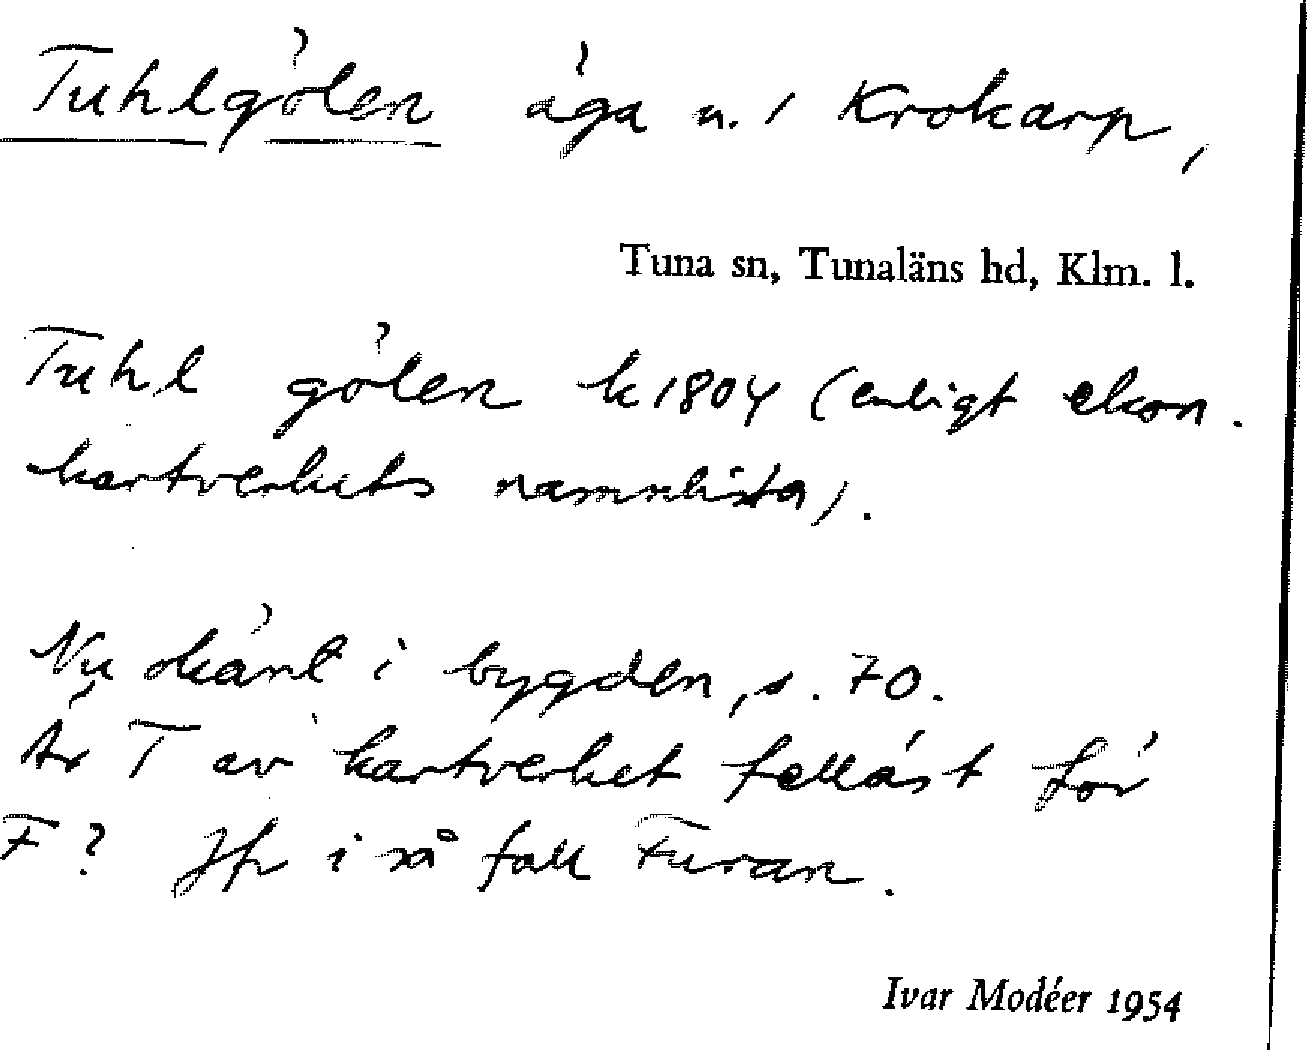 Tuhlgölen äga n. i Krokarp,
Tuna sn, Tunaläns hd, Klm. l.
Tuhl gölen k 1804 (enligt ekon.
kartverkets namnlista).
Nu okänt i bygden, s. 70.
Är T av kartverket felläst för
F? Jfr i så fall Furan.
Ivar Modéer 1954